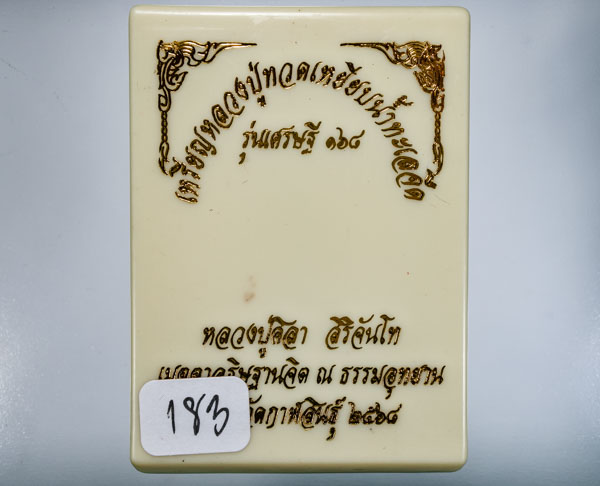 เหรียญหลวงปู่ทวดเหยียบน้ำทะเลจืด
รุ่นเศรษฐี ๑๖๘
หลวงปู่ศิลา สิริจันโท
เมตตาอธิษฐานจิต ณ ธรรมอุทยาน
กาฬสินธุ์ ๒๕๖๘
183